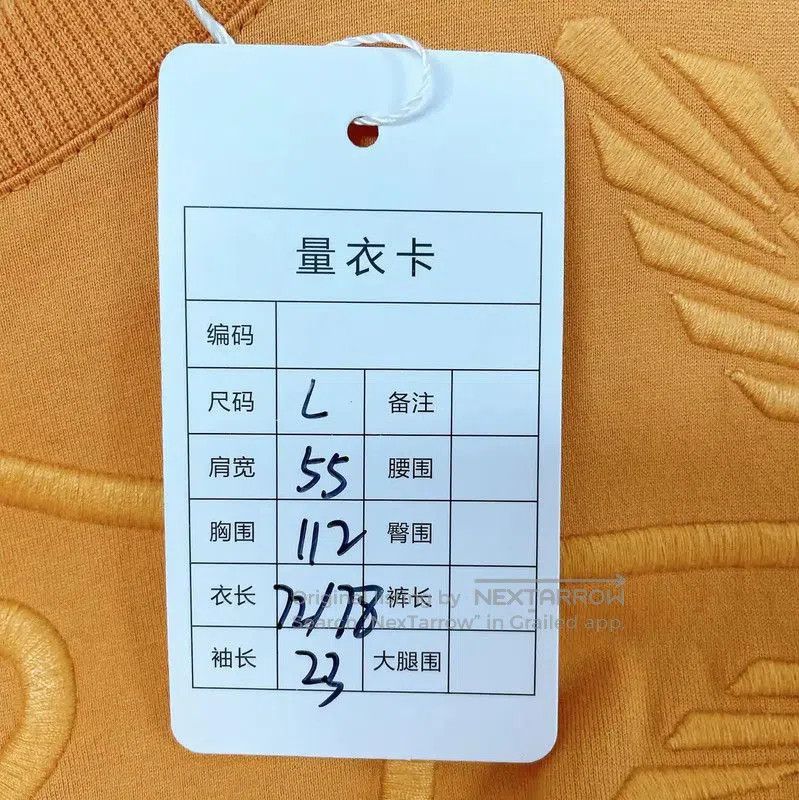 量衣卡
编码
尺码 L 备注
肩宽 55 腰围
胸围 112 臀围
衣长 72/78 裤长
Original listing by NEXTARROW
Search "NexTarrow" in Grailed app.
袖长 23 大腿围